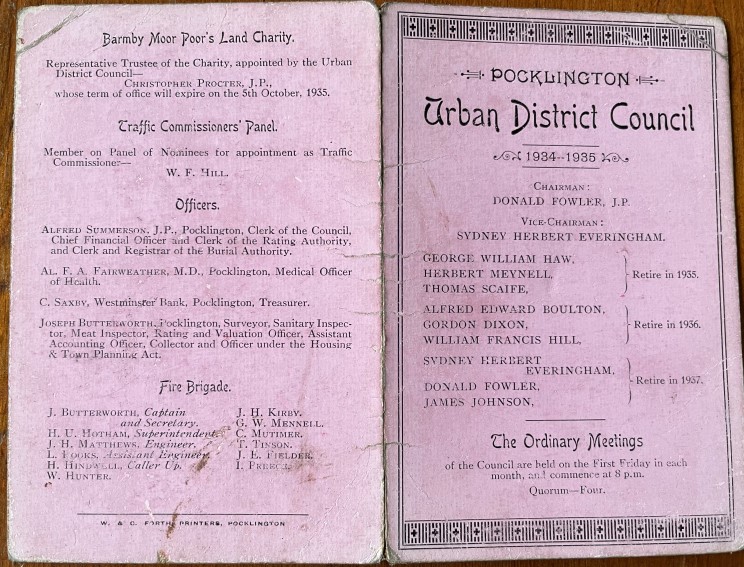 Barmby Moor Poor's Land Charity.
Representative Trustee of the Charity, appointed by the Urban
District Council—
CHRISTOPHER PROCTER, J.P.,
whose term of office will expire on the 5th October, 1935.
Traffic Commissioners' Panel.
Member on Panel of Nominees for appointment as Traffic
Commissioner—
W. F. HILL.
Officers.
ALFRED SUMMERSON, J.P., Pocklington, Clerk of the Council,
Chief Financial Officer and Clerk of the Rating Authority,
and Clerk and Registrar of the Burial Authority.
AL. F. A. FAIRWEATHER, M.D., Pocklington, Medical Officer
of Health.
C. SAXBY, Westminster Bank, Pocklington, Treasurer.
JOSEPH BUTTERWORTH, Pocklington, Surveyor, Sanitary Inspec-
tor, Meat Inspector, Rating and Valuation Officer, Assistant
Accounting Officer, Collector and Officer under the Housing
& Town Planning Act.
Fire Brigade.
J. BUTTERWORTH, Captain
and Secretary.
H. U. HOTHAM, Superintendent.
J. H. MATTHEWS, Engineer.
L. FOOKS, Assistant Engineer.
H. HINDWELL, Caller Up.
W. HUNTER.
J. H. KIRBY.
G. W. MENNELL.
C. MUTIMER.
T. TINSON.
J. E. FIELDER.
I. PREECE.
W. & C. FORTH, PRINTERS, POCKLINGTON
POCKLINGTON
Urban District Council
1934--1935
CHAIRMAN:
DONALD FOWLER, J.P.
VICE-CHAIRMAN:
SYDNEY HERBERT EVERINGHAM.
GEORGE WILLIAM HAW,
HERBERT MEYNELL,
THOMAS SCAIFE,
Retire in 1935.
ALFRED EDWARD BOULTON,
GORDON DIXON,
WILLIAM FRANCIS HILL,
Retire in 1936.
SYDNEY HERBERT
EVERINGHAM,
DONALD FOWLER,
JAMES JOHNSON,
Retire in 1937.
The Ordinary Meetings
of the Council are held on the First Friday in each
month, and commence at 8 p.m.
Quorum—Four.